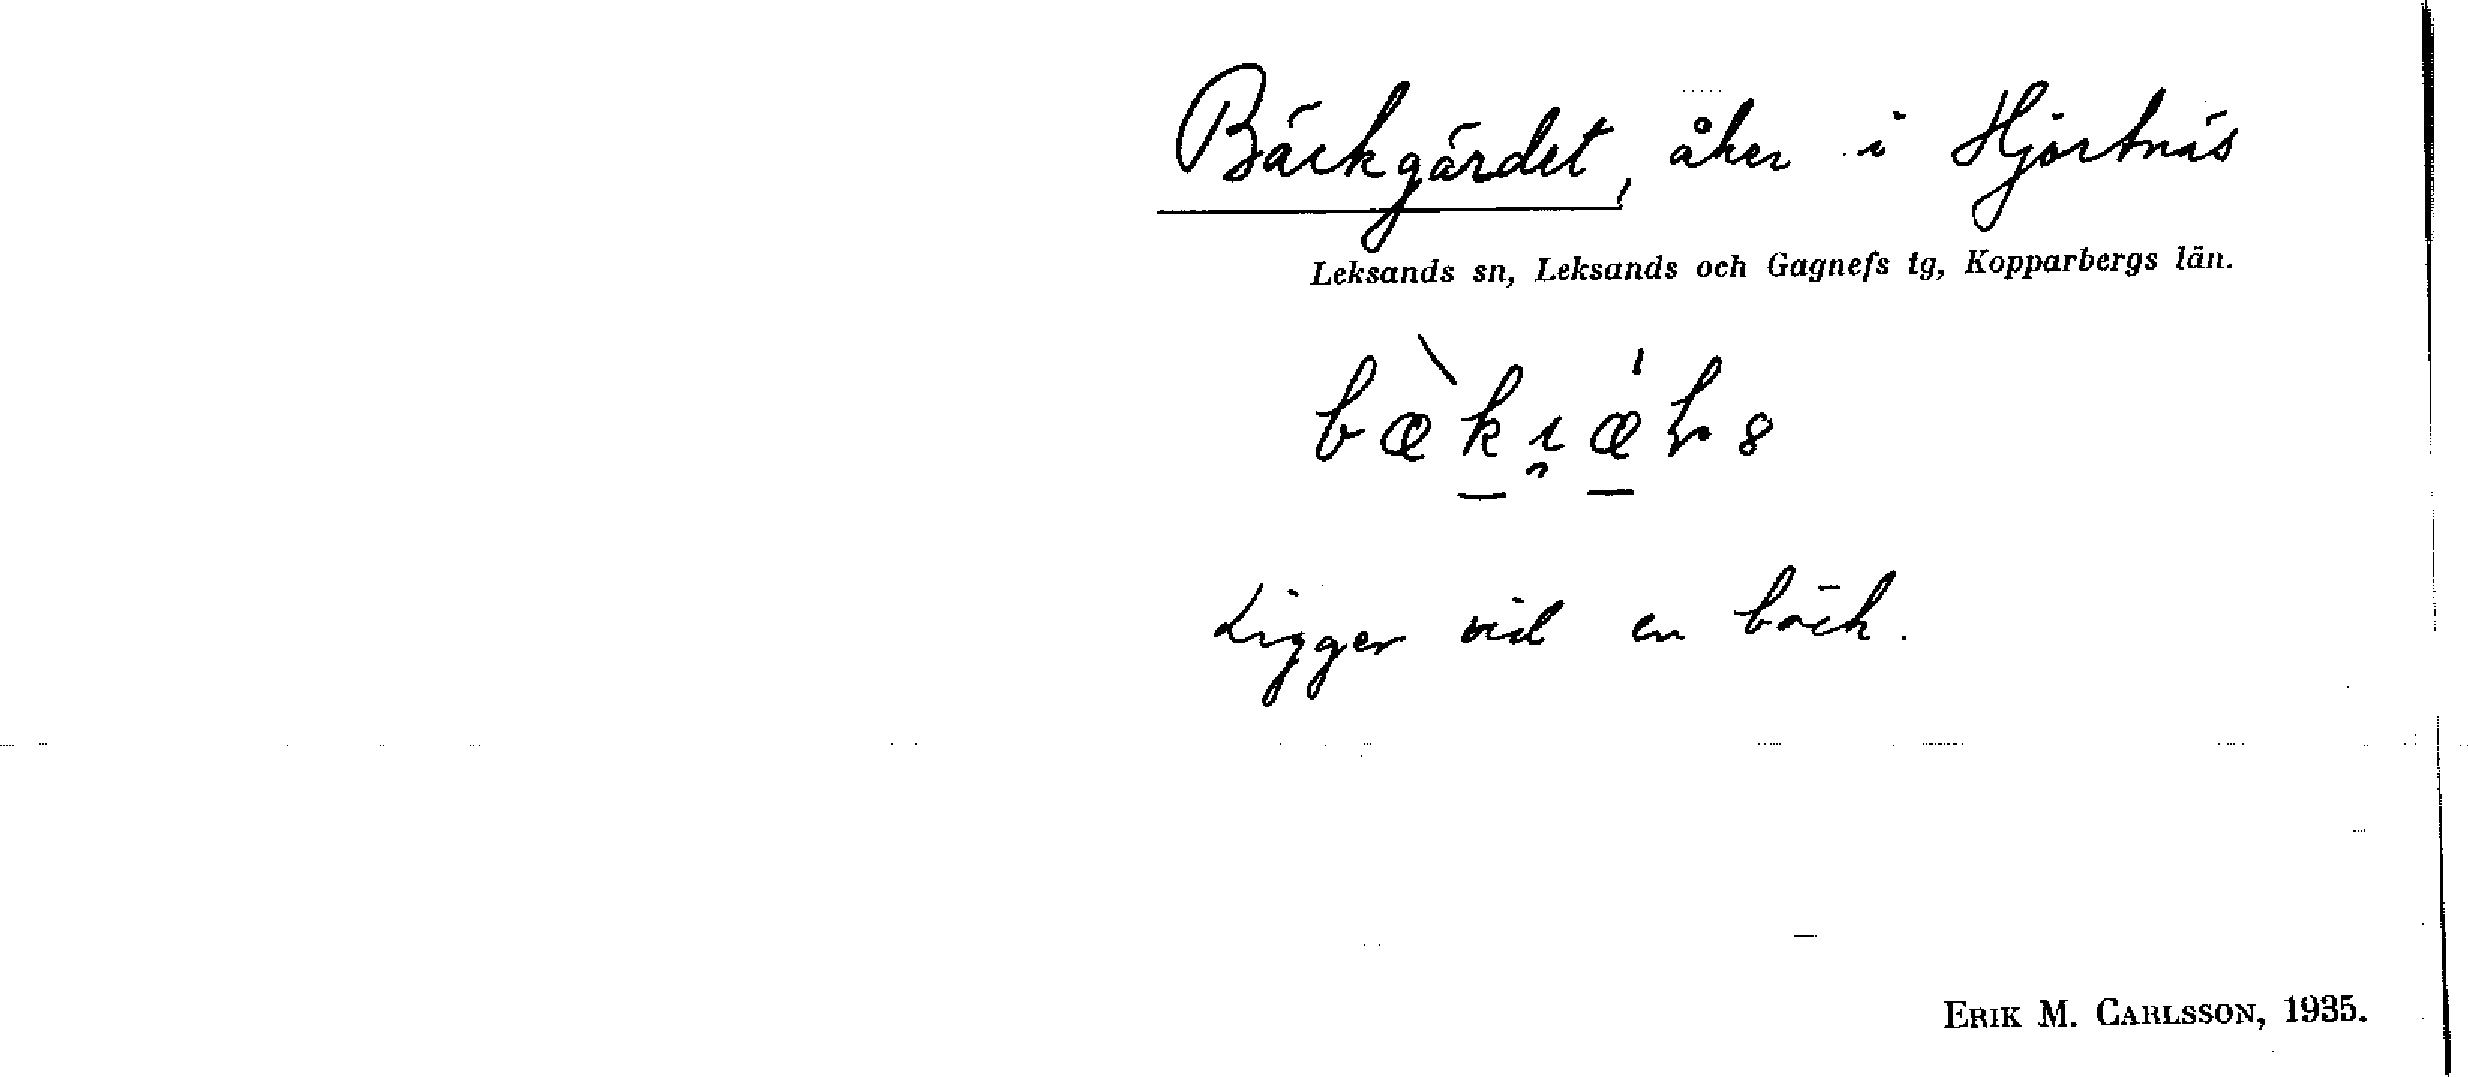 Bäckgärdet, åker i Hjortnäs
Leksands sn, Leksands och Gagnefs tg, Kopparbergs län.
Ligger vid en bäck.
ERIK M. CARLSSON, 1935.